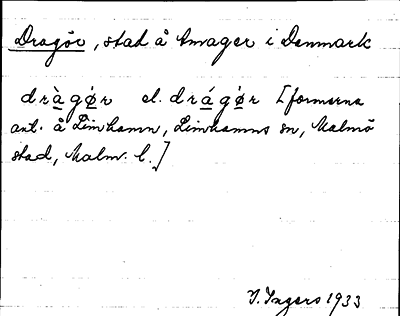 Dragör, stad å Amager i Denmark
dràgǿr el. drágǿr [formerna
ant. å Limhamn, Limhamns sn, Malmö
stad, Malm. l.]
I. Ingers 1933